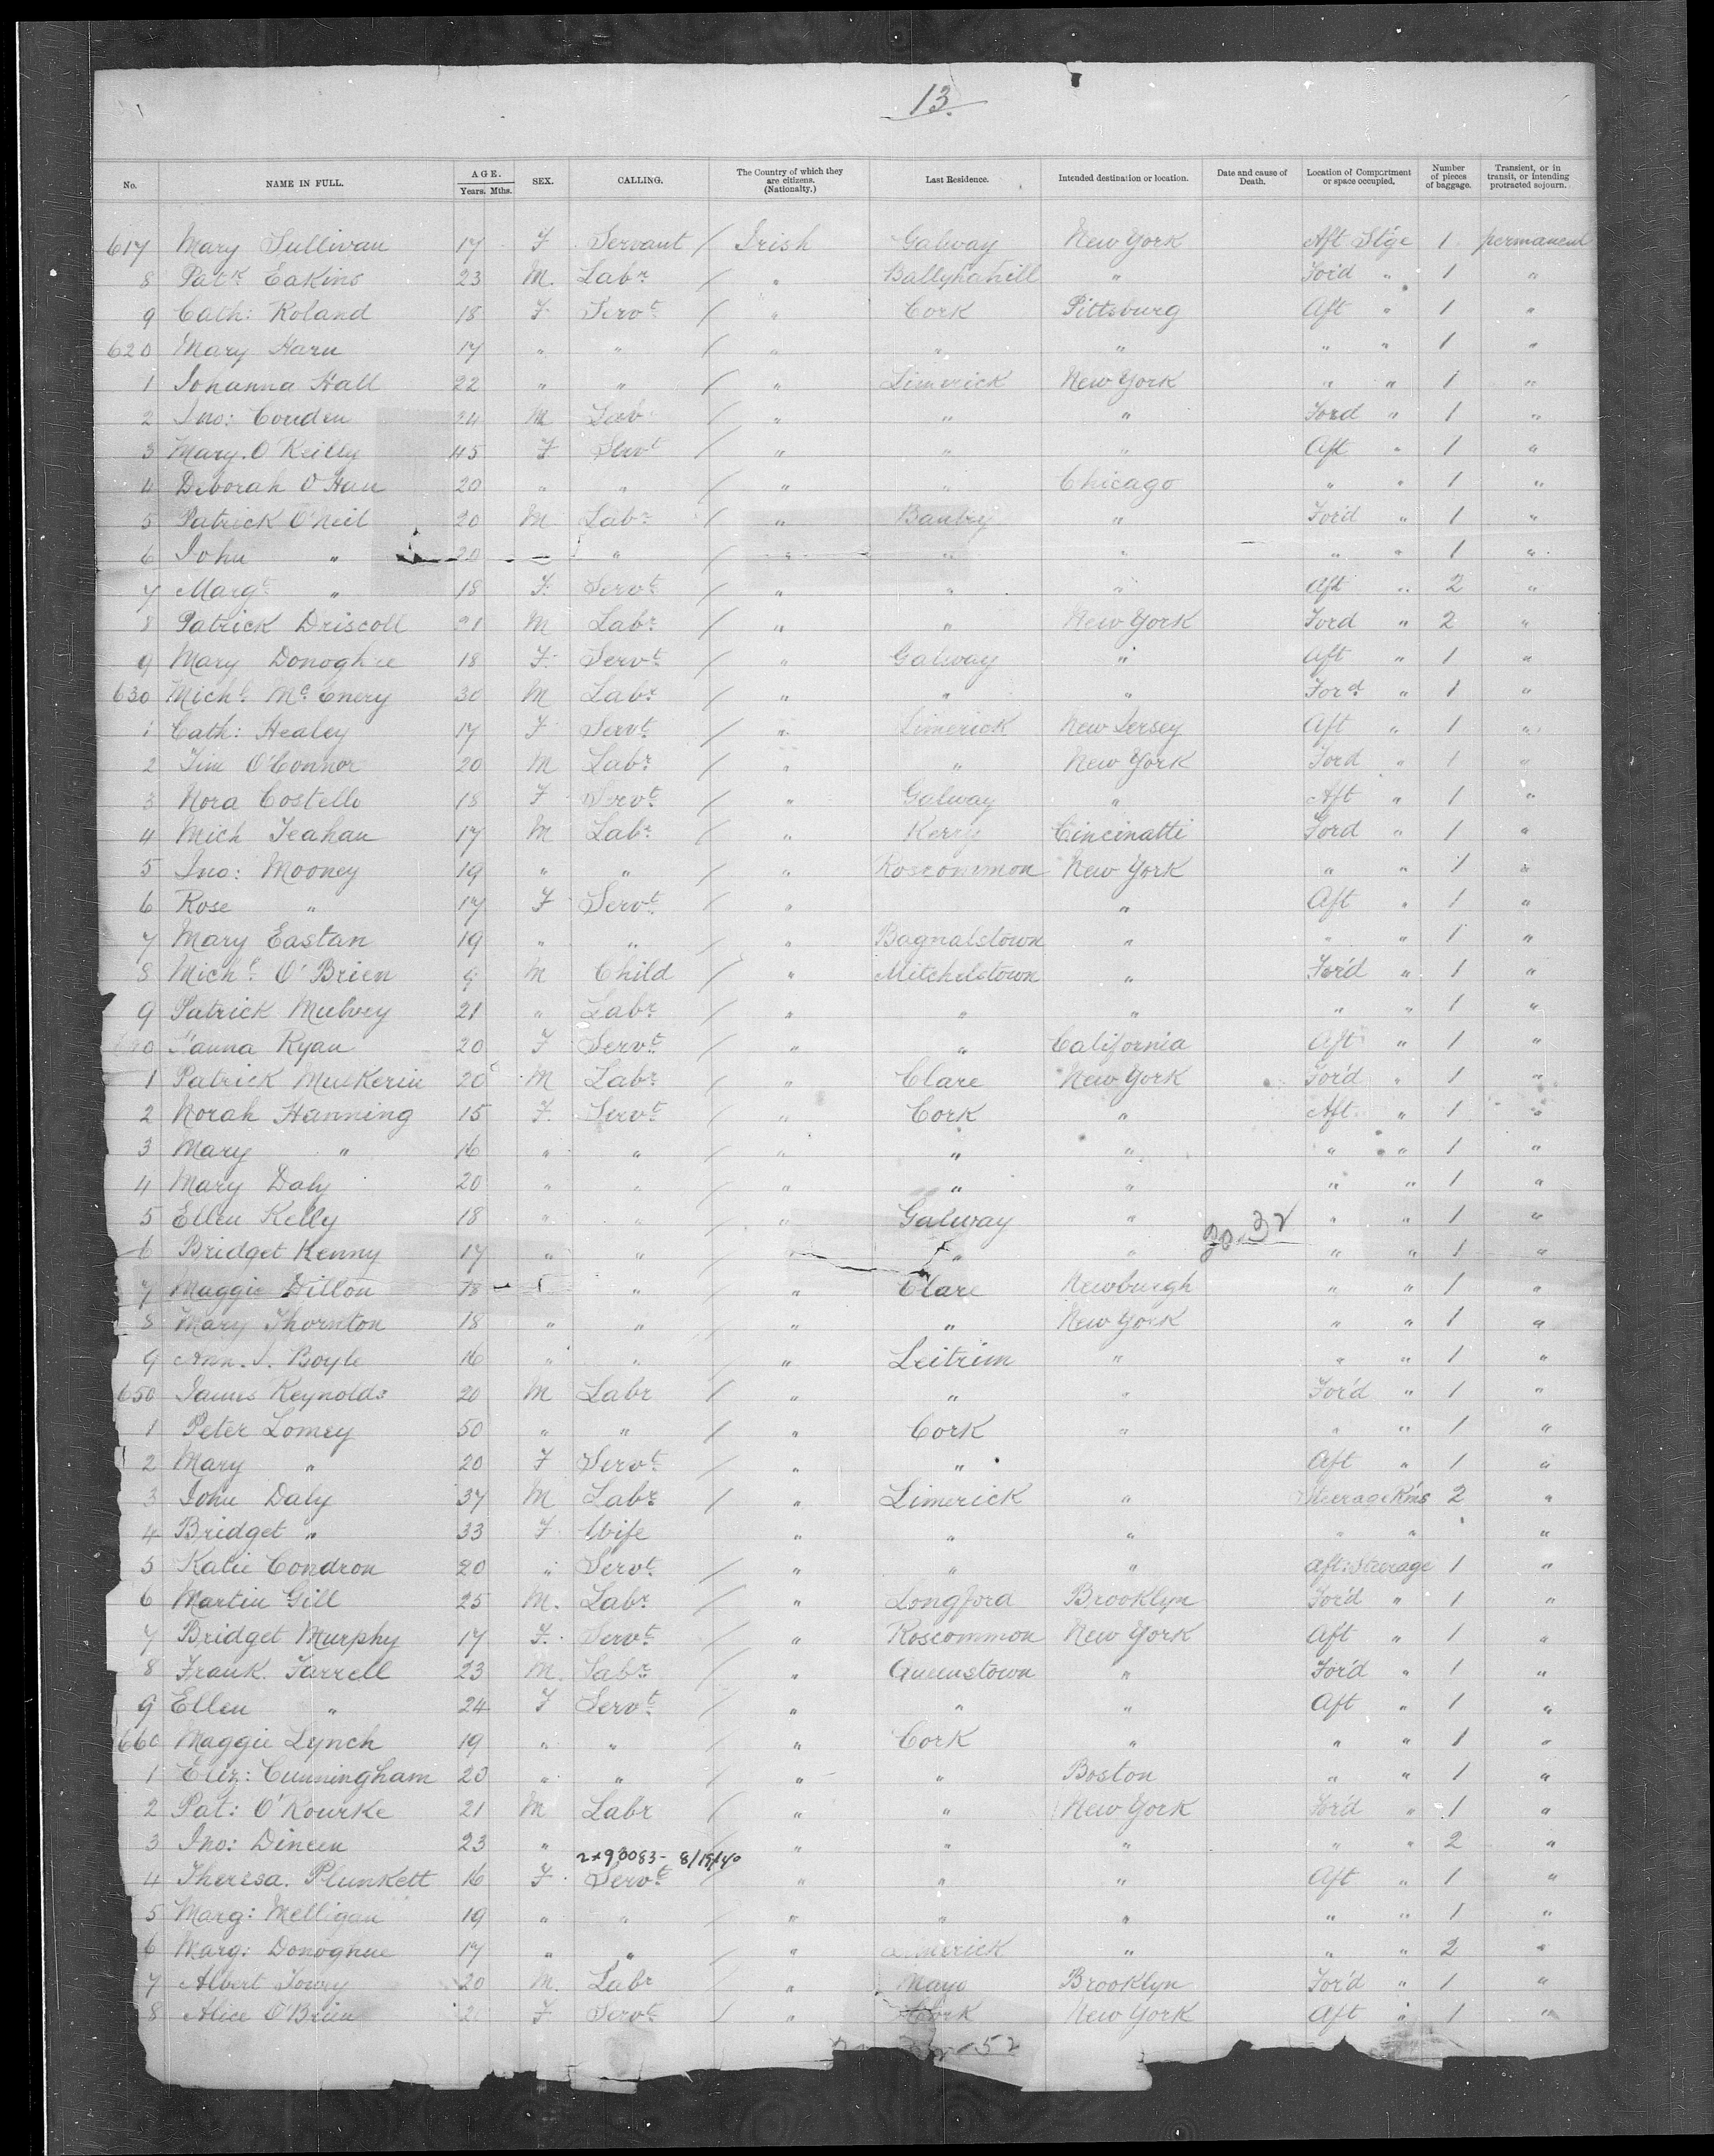 13.
No. NAME IN FULL. AGE. Years. Mths. SEX. CALLING. The Country of which they are citizens. (Nationalty.) Last Residence. Intended destination or location. Date and cause of Death. Location of Compartment or space occupied. Number of pieces of baggage. Transient, or in transit, or intending protracted sojourn.
617 Mary Sullivan 17 F Servant / Irish Galway New York Aft St'ge 1 permanent
8 Patk Eakins 23 M. Labr / " Ballyhahill " For'd " 1 "
9 Cath: Roland 18 F Servt / " Cork Pittsburg Aft " 1 "
620 Mary Haru 17 " " / " " " " " 1 "
1 Johanna Hall 22 " " / " Limerick New York " " 1 "
2 Jno: Couden 24 M Lab / " " " Ford " 1 "
3 Mary. O'Reilly 45 F Servt / " " " Aft " 1 "
4 Deborah O'Hau 20 " " / " " Chicago " " 1 "
5 Patrick O'Neil 20 M Labr / " Bantry " For'd " 1 "
6 John " 20 " / " " " " " 1 "
7 Margt " 18 F Servt / " " " Aft " 2 "
8 Patrick Driscoll 21 M Labr / " " New York Ford " 2 "
9 Mary Donoghue 18 F. Servt / " Galway " Aft " 1 "
630 Michl McEnery 30 M Labr / " " " Ford " 1 "
1 Cath: Healey 17 F Servt / " Limerick New Jersey Aft " 1 "
2 Tim O'Connor 20 M Labr / " " New York Ford " 1 "
3 Nora Costello 18 F Servt / " Galway " Aft " 1 "
4 Mich Teahan 17 M Labr / " Kerry Cincinatti Ford " 1 "
5 Jno: Mooney 19 " " / " Roscommon New York " " 1 "
6 Rose " 17 F Servt / " " Aft " 1 "
7 Mary Eastan 19 " " / " Bagnalstown " " " 1 "
8 Michl O'Brien M Child / " Mitchelstown " For'd " 1 "
9 Patrick Mulvey 21 " Labr / " " " " " 1 "
0 Hanna Ryan 20 F Servt / " " California Aft " 1 "
1 Patrick Mulkerin 20 M Labr / " Clare New York For'd " 1 "
2 Norah Hanning 15 F. Servt / " Cork " Aft " 1 "
3 Mary " 16 " " / " " " " " 1 "
4 Mary Daly 20 " " / " " " " " 1 "
5 Ellen Kelly 18 " " / " Galway " " " 1 "
6 Bridget Kenny 17 " " " " " " " 1 "
7 Maggie Dillon 18 " / " Clare Newburgh " " 1 "
8 Mary Thornton 18 " " / " " New York " " 1 "
9 Ann. J. Boyle 16 " " / " Leitrim " " " 1 "
650 James Reynolds 20 M Labr / " " " For'd " 1 "
1 Peter Lomey 50 " " / " Cork " " " 1 "
2 Mary " 20 F Servt / " " Aft " 1 "
3 John Daly 37 M Labr / " Limerick " Steerage Rms 2 "
4 Bridget " 33 F Wife " " " " " "
5 Katie Condron 20 " Servt / " " " Aft: Steerage 1 "
6 Martin Gill 25 M. Labr / " Longford Brooklyn For'd " 1 "
7 Bridget Murphy 17 F. Servt / " Roscommon New York Aft " 1 "
8 Frank. Farrell 23 M. Labr / " Queenstown " For'd " 1 "
9 Ellen " 24 F Servt / " " " Aft " 1 "
660 Maggie Lynch 19 " " / " Cork " " " 1 "
1 Eliz: Cunningham 20 " " / " " Boston " " 1 "
2 Pat: O'Rourke 21 M Labr / " " New York For'd " 1 "
3 Jno: Dineen 23 " " " " " " 2 "
2x93083- 8/19/40
4 Theresa. Plunkett 16 F Servt / " " " Aft " 1 "
5 Marg: Melligan 19 " " / " " " " " 1 "
6 Marg: Donoghue 17 " " / " Limerick " " " 2 "
7 Albert Towey 20 M. Labr / " Mayo Brooklyn For'd " 1 "
8 Alice O'Brien F Servt / " Cork New York Aft " 1 "
52